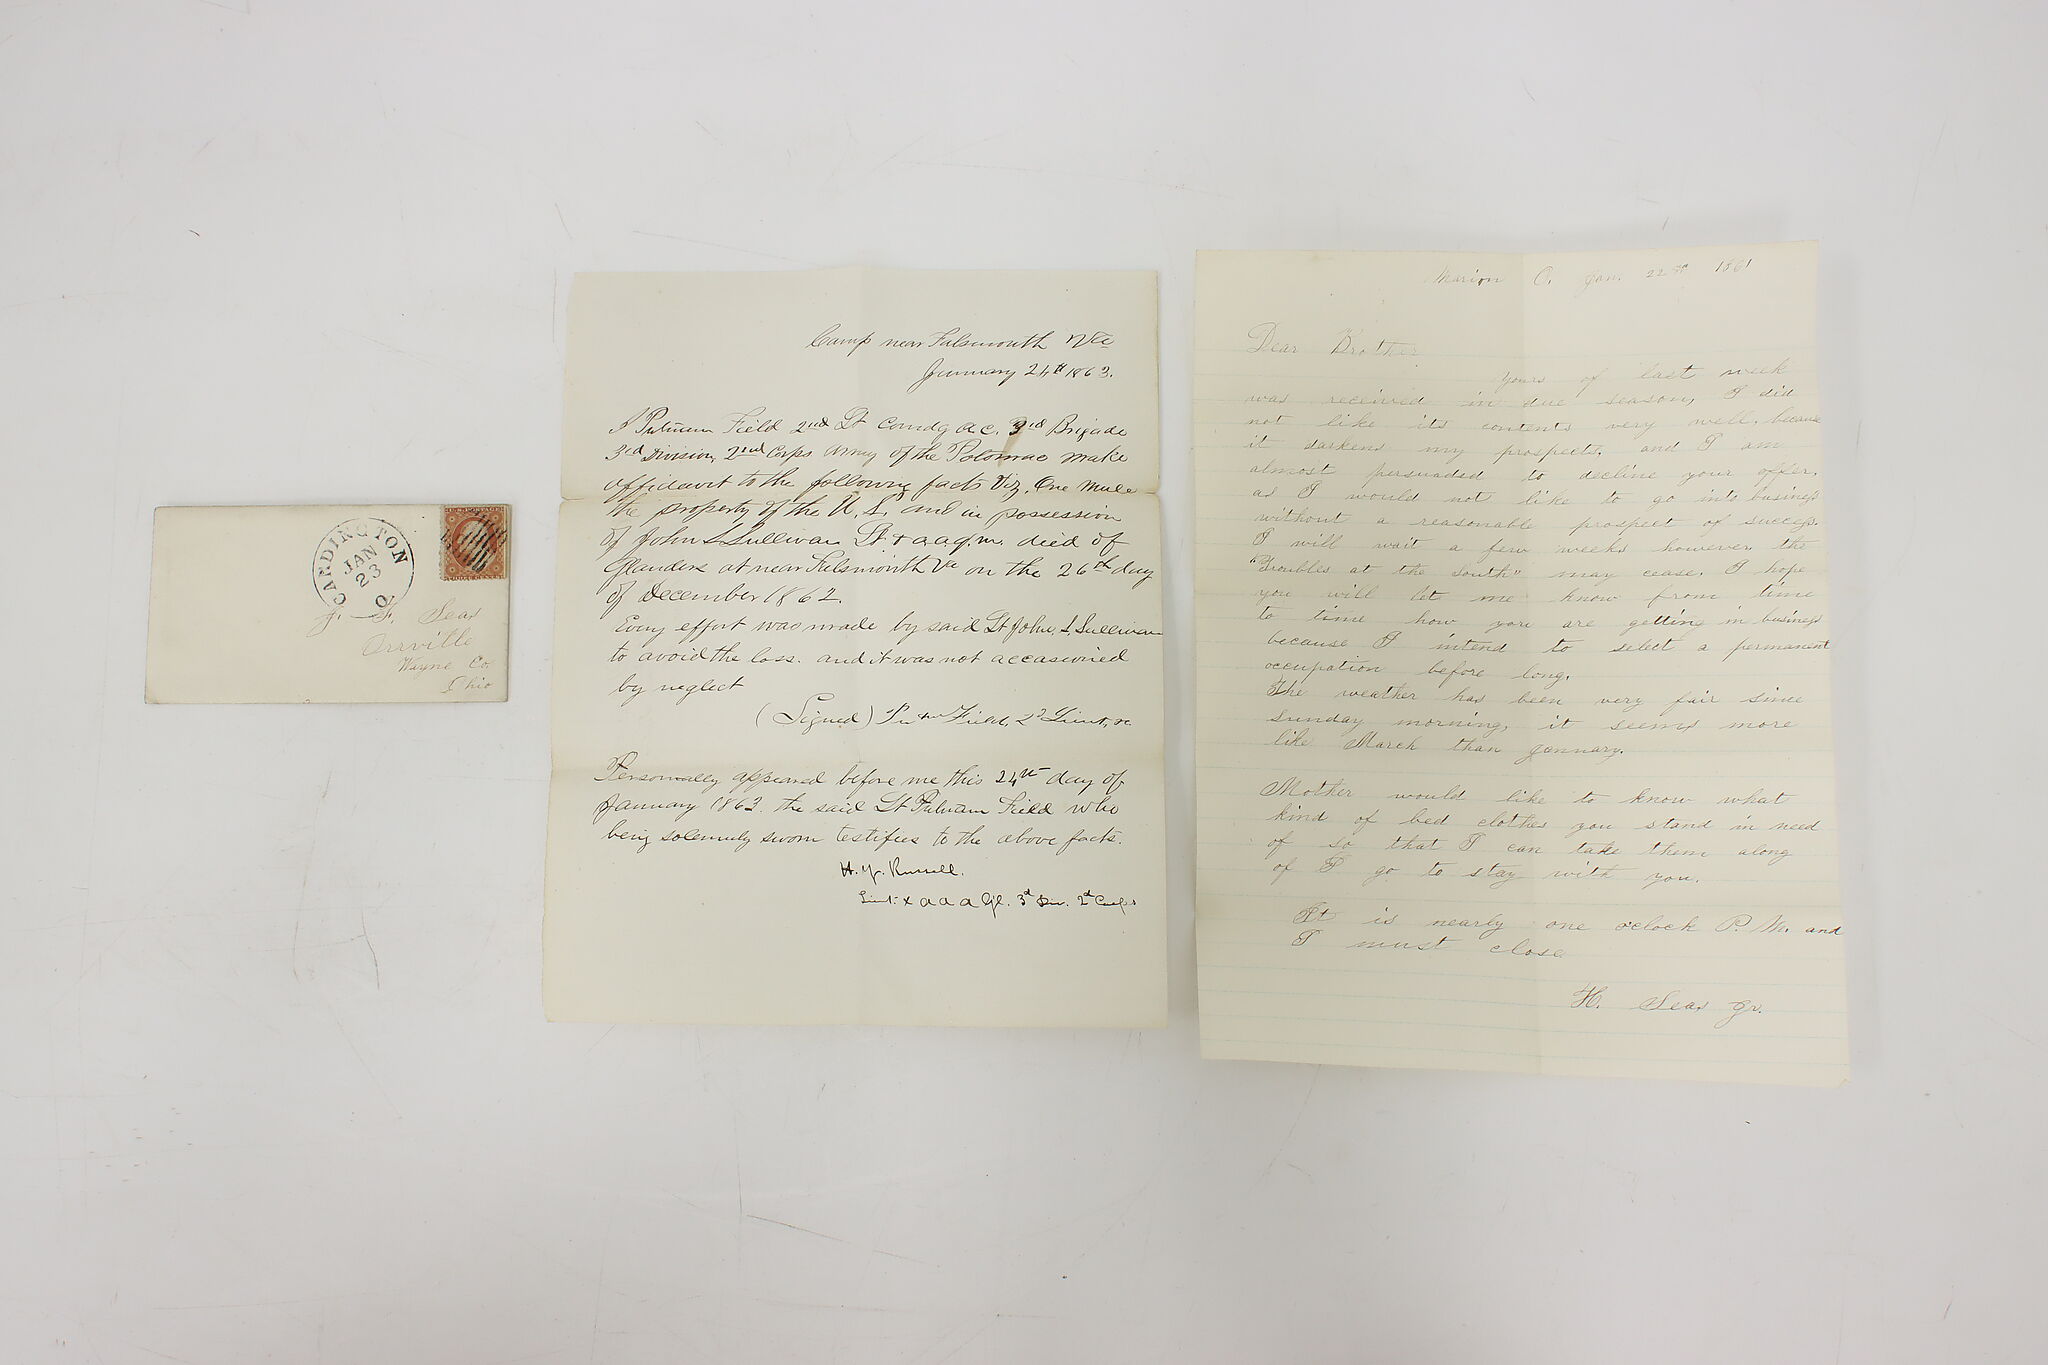 CARDINGTON
JAN
23
O
U.S. POSTAGE
THREE CENTS
J. F. Seas
Orrville
Wayne Co
Ohio
Camp near Falsmouth Va
January 24th 1863.
I Putnam Field 2nd Lt Comdg a.c. 3rd Brigade
3rd Division, 2nd Corps Army of the Potomac make
affidavit to the following facts Viz, One Mule
the property of the U. S. and in possession
of John S Sullivan Lt & a a q.m. died of
Glanders at near Falsmouth Va on the 26th day
of December 1862.
Every effort was made by said Lt John, S, Sullivan
to avoid the loss. and it was not accasioned
by neglect
(Signed) Field, 2d Lieut,
Personally appeared before me this 24th day of
January 1863. the said Lt Putnam Field who
being solemnly sworn testifies to the above facts.
H. Y. Russell.
Lieut & a a a Gl. 3d Div. 2d Corps
Marion O. Jan. 22nd 1861
Dear Brother
Yours of last week
was received in due season, I did
not like its contents very well, because
it darkens my prospects, and I am
almost persuaded to decline your offer,
as I would not like to go into business
without a reasonable prospect of success.
I will wait a few weeks however, the
"Troubles at the South" may cease. I hope
you will let me know from time
to time how you are getting in business
because I intend to select a permanent
occupation before long.
The weather has been very fair since
Sunday morning, it seems more
like March than January.
Mother would like to know what
kind of bed clothes you stand in need
of so that I can take them along
if I go to stay with you.
It is nearly one o'clock P. M. and
I must close
H. Seas Jr.